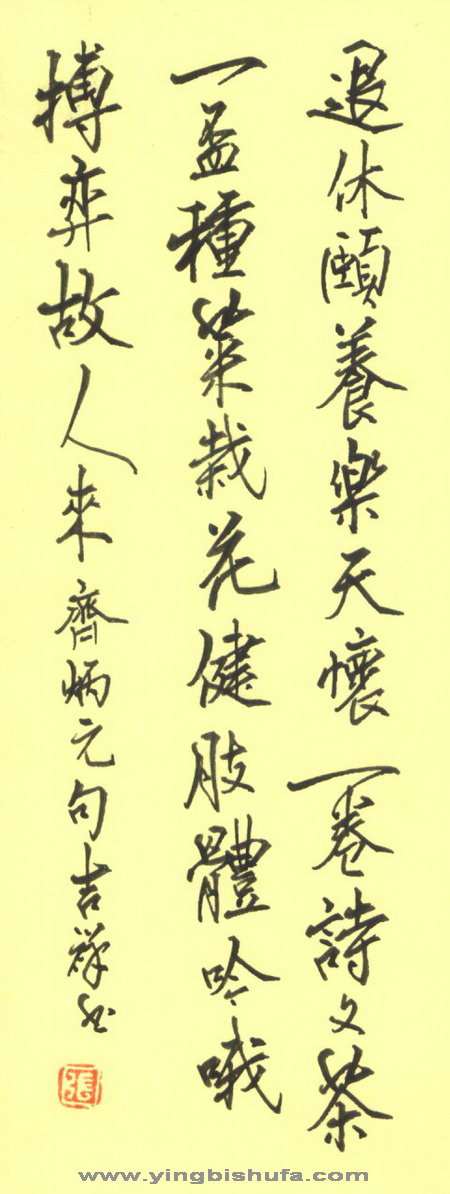 退休頤養樂天懷一卷詩文茶
一盃種菜栽花健肢體吟哦
搏弈故人來齊炳元句吉祥书
張
www.yingbishufa.com